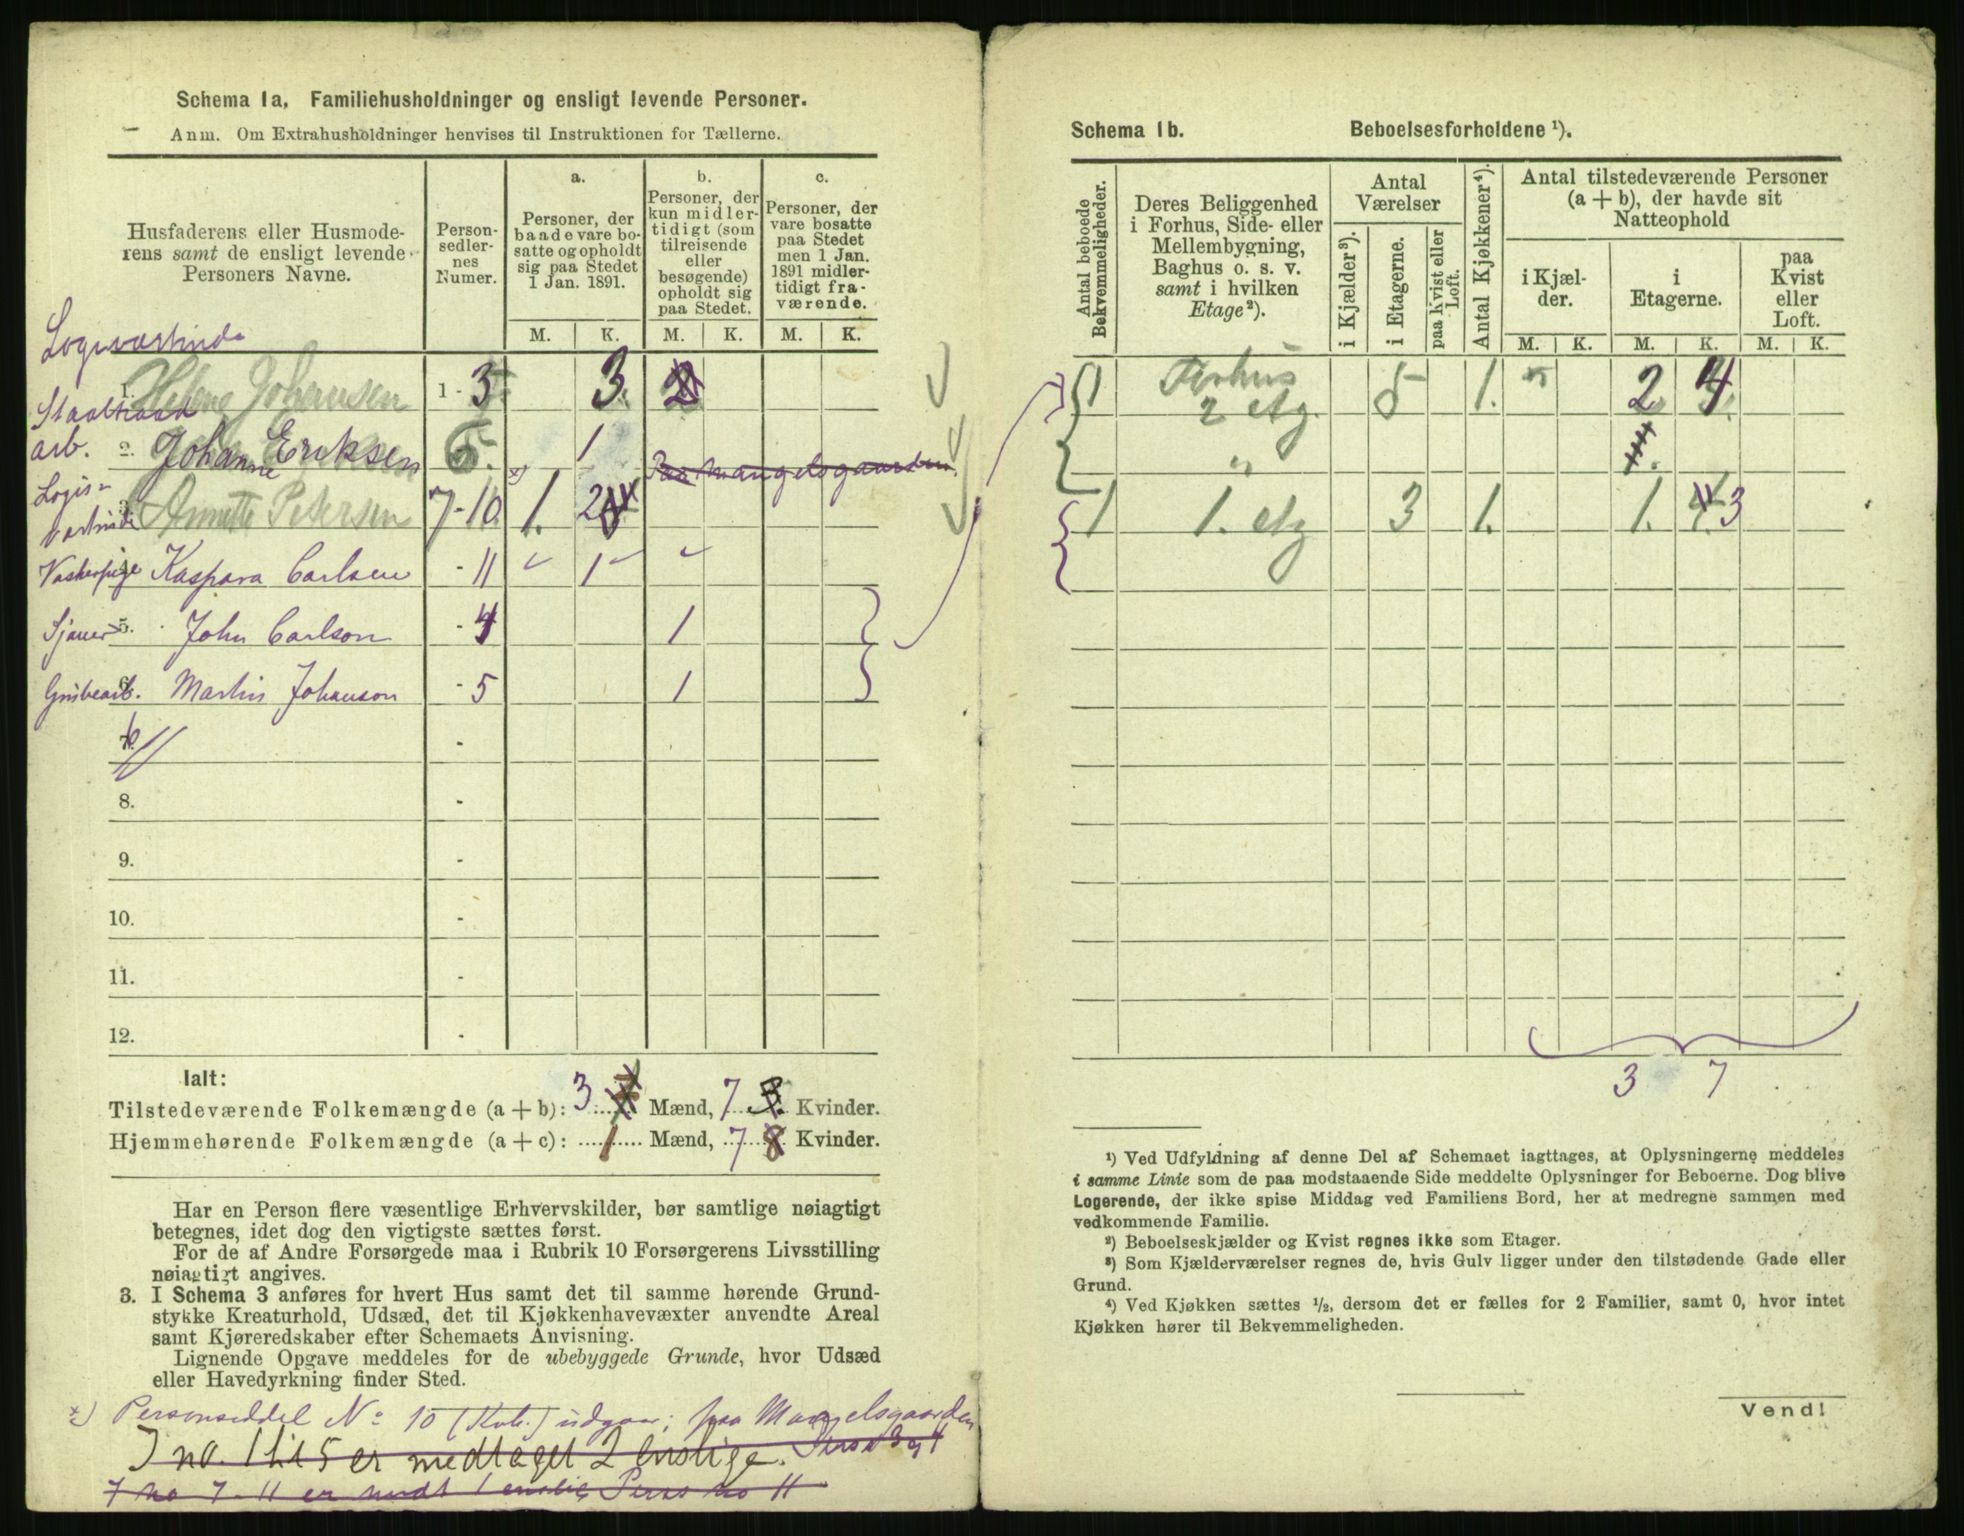 Schema 1a. Familiehusholdninger og ensligt levende Personer.
Anm. Om Extrahusholdninger henvises til Instruktionen for Tællerne.
Husfaderens eller Husmoderens samt de ensligt levende Personers Navne.
Personsedlernes Numer.
a.
Personer, der baade vare bosatte og opholdt sig paa Stedet 1 Jan. 1891.
b.
Personer, der kun midlertidigt (som tilreisende eller besøgende) opholdt sig paa Stedet.
c.
Personer, der vare bosatte paa Stedet men 1 Jan. 1891 midlertidigt fraværende.
M. K. M. K. M. K.
Logisvertinde
1. Helene Johansen 1 - 3 3. 2
Staaltraad
arb. 2. Johanne Eriksen 6 1
Paa Mangelsgaarden
Logis-
vertinde 3. Annette Petersen 7-10. *) 1. 2
Vaskerpige Kaspara Carlsen - 11 1
Sjauer 5. John Carlson - 4 1
Grubearb. 6. Martin Johanson - 5 1
7. -
8. -
9. -
10. -
11. -
12. -
Ialt:
Tilstedeværende Folkemængde (a + b): 3 Mænd, 7 Kvinder.
Hjemmehørende Folkemængde (a + c): 1 Mænd, 7 8 Kvinder.
Har en Person flere væsentlige Erhvervskilder, bør samtlige nøiagtigt
betegnes, idet dog den vigtigste sættes først.
For de af Andre Forsørgede maa i Rubrik 10 Forsørgerens Livsstilling
nøiagtigt angives.
3. I Schema 3 anføres for hvert Hus samt det til samme hørende Grund-
stykke Kreaturhold, Udsæd, det til Kjøkkenhavevæxter anvendte Areal
samt Kjøreredskaber efter Schemaets Anvisning.
Lignende Opgave meddeles for de ubebyggede Grunde, hvor Udsæd
eller Havedyrkning finder Sted.
*) Personseddel No 10 (Kvk.) udgaar; paa Mangelsgaarden
I no. 1 til 5 er medtaget 2 enslige. Pers no 3 og 4
I no 7-11 er medt 1 enslig Pers no 11
Schema 1b. Beboelsesforholdene ¹).
Antal beboede Bekvemmeligheder.
Deres Beliggenhed i Forhus, Side- eller Mellembygning, Baghus o. s. v. samt i hvilken Etage²).
Antal Værelser
i Kjælder³).
i Etagerne.
paa Kvist eller Loft.
Antal Kjøkkener⁴).
Antal tilstedeværende Personer (a + b), der havde sit Natteophold
i Kjælder.
i Etagerne.
paa Kvist eller Loft.
M. K. M. K. M. K.
1 Forhus
2 etg. 5 1. 2 4
"
1 1. etg 3 1. 1. 3
3 7
¹) Ved Udfyldning af denne Del af Schemaet iagttages, at Oplysningerne meddeles
i samme Linie som de paa modstaaende Side meddelte Oplysninger for Beboerne. Dog blive
Logerende, der ikke spise Middag ved Familiens Bord, her at medregne sammen med
vedkommende Familie.
²) Beboelseskjælder og Kvist regnes ikke som Etager.
³) Som Kjælderværelser regnes de, hvis Gulv ligger under den tilstødende Gade eller
Grund.
⁴) Ved Kjøkken sættes ½, dersom det er fælles for 2 Familier, samt 0, hvor intet
Kjøkken hører til Bekvemmeligheden.
Vend!